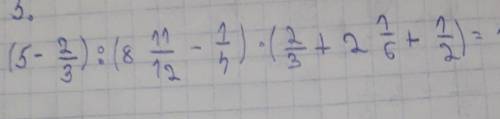 3.
(5 - 2/3) : (8 11/12 - 1/4) · (2/3 + 2 1/6 + 1/2) =